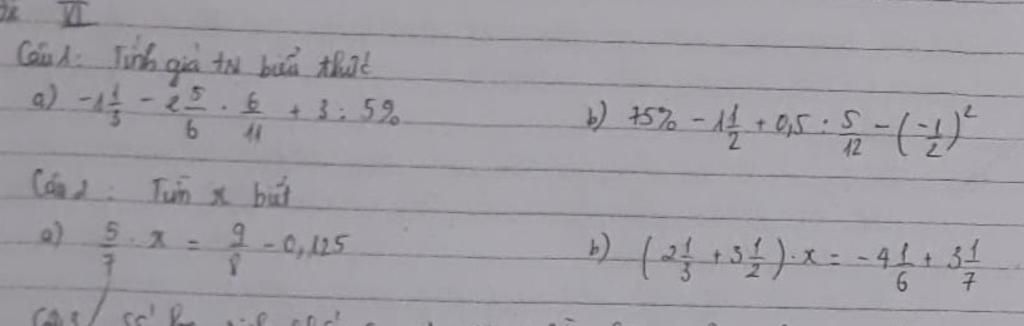 VI
Câu 1: Tính giá trị biểu thức
a) -1 1/3 - 2 5/6 . 6/11 + 3 : 5% b) 75% - 1 1/2 + 0,5 : 5/12 - (-1/2)²
Câu 2: Tìm x biết
a) 5/7 . x = 9/8 - 0,125 b) (2 1/3 + 3 1/2) . x = -4 1/6 + 3 1/7